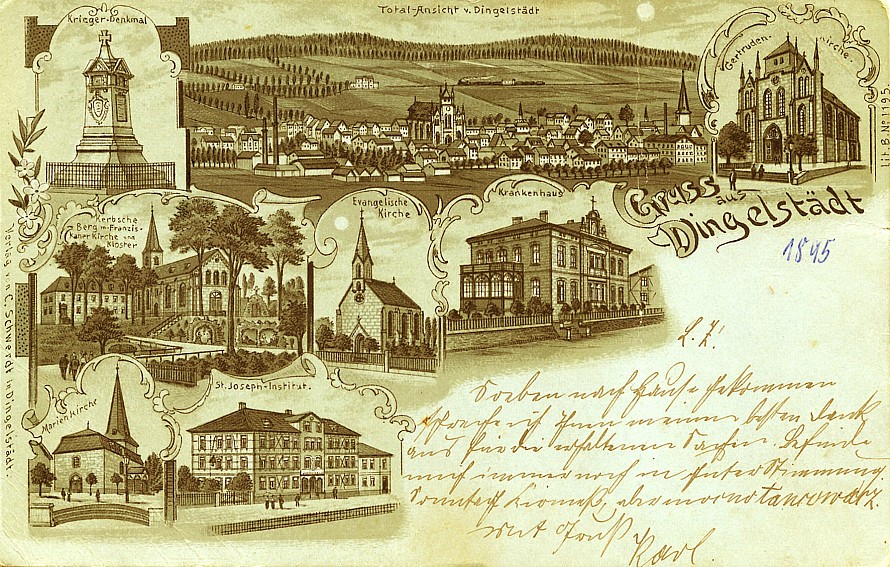 Krieger-Denkmal
Total-Ansicht v. Dingelstädt
Gertruden-
kirche.
Kerbsche
Berg m. Franzis-
kaner Kirche und
Kloster
Evangelische
Kirche
Krankenhaus
Gruss
aus
Dingelstädt
1895
Marienkirche
St. Joseph-Institut.
Verlag v. C. Schwerdt in Dingelstädt.
L. Z!
Soeben nach Hause gekommen
spreche ich Ihnen meinen besten Dank
aus für die erhaltenen Sachen. Befinde
mich immer noch in guter Stimmung
Sonntag Kirmeß, aber
Mit Gruß
Karl.